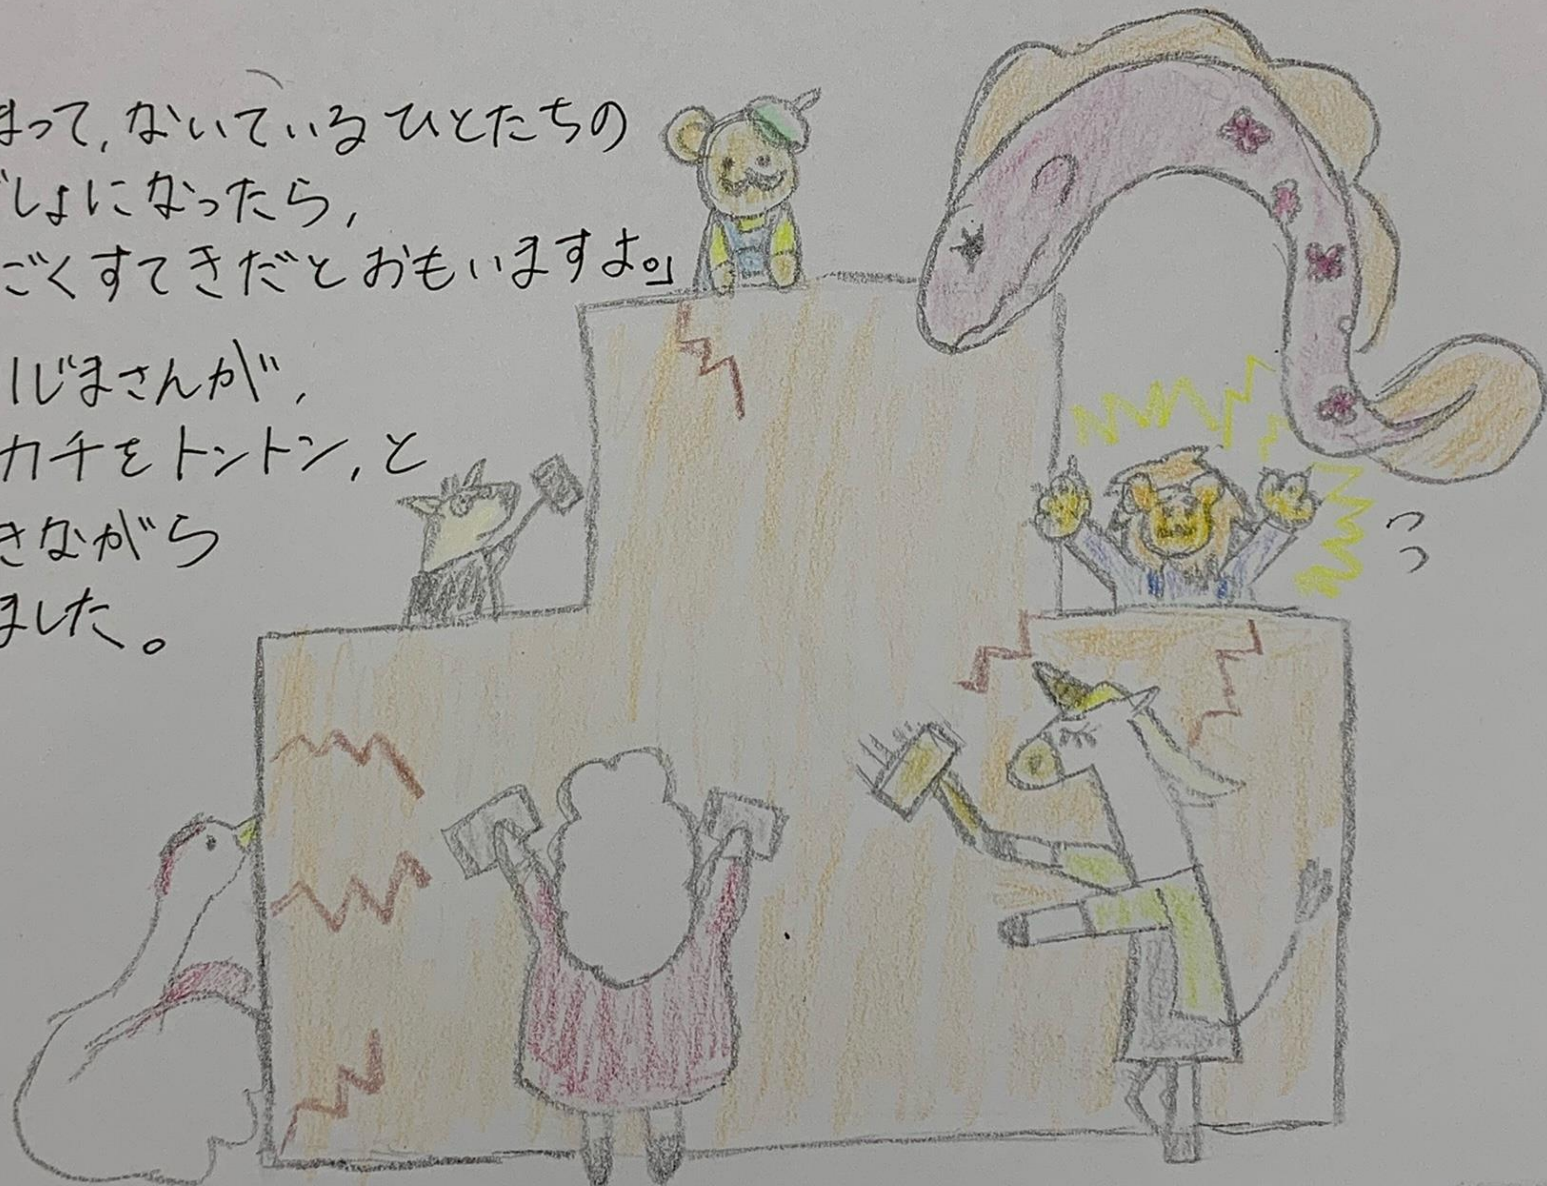 まって,ないているひとたちの
しょになったら,
ごくすてきだとおもいますよ。」
じまさんが,
カチをトントン,と
きながら
ました。